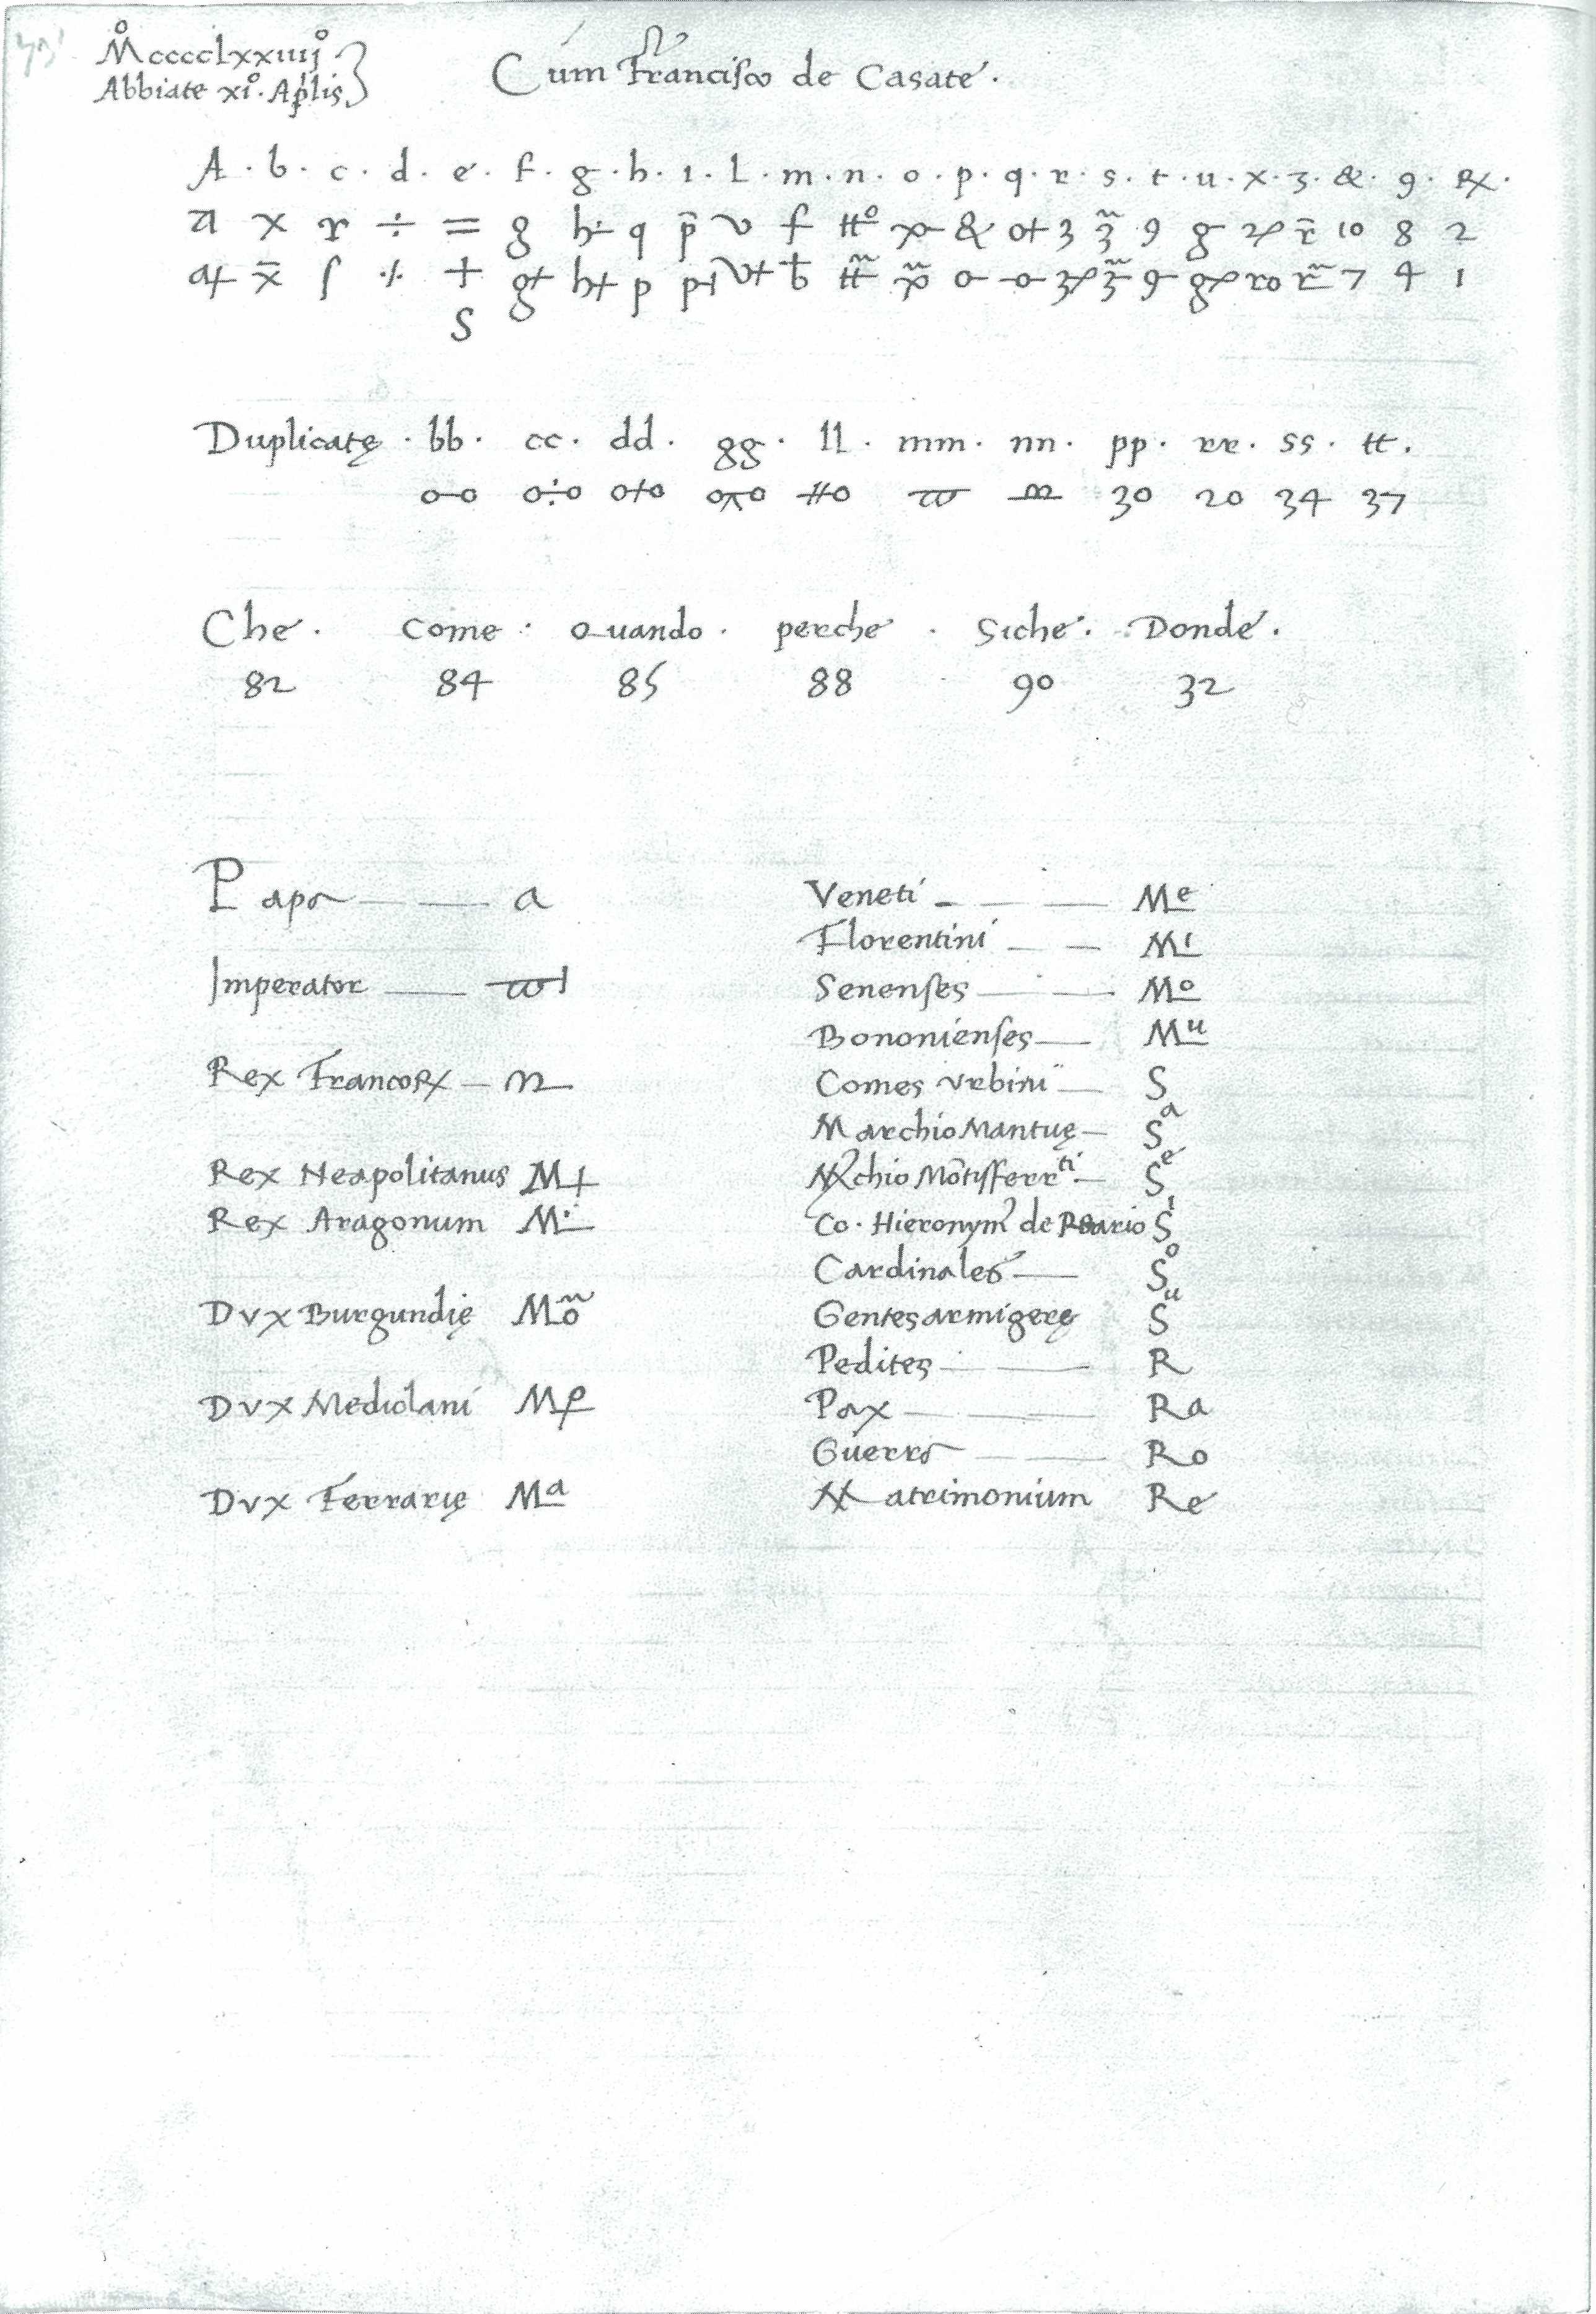 M°ccccclxxiiij°
Abbiate xi°. Aplis
Cum D. Francisco de Casate.
A . b . c . d . e . f . g . h . i . l . m . n . o . p . q . r . s . t . u . x . z . & . 9 . Rx .
a x r ÷ = g h q p̄ v f tt° x & o+ 3 3̃ 9 g r̄ 10 8 2
a+ x̄ ʃ ·/· + g+ h+ p p+ v+ t̄ tt̃ x̃ o- -o- 3 3̃ 9- g ro r̃ 7 4 1
S
Duplicatę . bb . cc . dd . gg . ll . mm . nn . pp . rr . ss . tt .
o-o o÷o o+o oπo #o ϖ 30 20 34 37
Che . Come . Quando . perche . Siche . Donde .
82 84 85 88 90 32
Papa a
Imperator
Rex Francorꝝ
Rex Neapolitanus M+
Rex Aragonum M∸
Dvx Burgundię Mõ
Dvx Mediolani
Dvx Ferrarię Mᵃ
Veneti Mᵉ
Florentini Mⁱ
Senenses Mᵒ
Bononienses Mᵘ
Comes Urbini S
Marchio Mantuę Sᵃ
Mrchio Mōtisferrᵗⁱ. Sᵉ
Co. Hieronym9 de Riario Sⁱ
Cardinales Sᵒ
Gentes armigerę Sᵘ
Pedites R
Pax Ra
Guerra Ro
Matrimonium Re